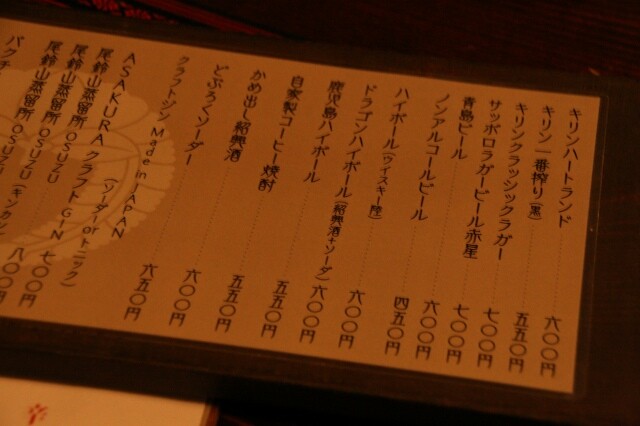 キリンハートランド 六〇〇円
キリン一番搾り(黒) 五五〇円
キリンクラッシックラガー 七〇〇円
サッポロラガービール赤星 七〇〇円
青島ビール 六〇〇円
ノンアルコールビール 四五〇円
ハイボール(ウイスキー陸) 六〇〇円
ドラゴンハイボール(紹興酒+ソーダ) 六〇〇円
鹿児島ハイボール 五五〇円
自家製コーヒー焼酎 五五〇円
かめ出し紹興酒 六〇〇円
どぶろくソーダー 六五〇円
クラフトジン Made in JAPAN
(ソーダorトニック)
ASAKURA クラフトGIN 七〇〇円
尾鈴山蒸留所OSUZU 八〇〇円
尾鈴山蒸留所OSUZU
尾鈴山蒸留所OSUZU(キンカン
パクチ